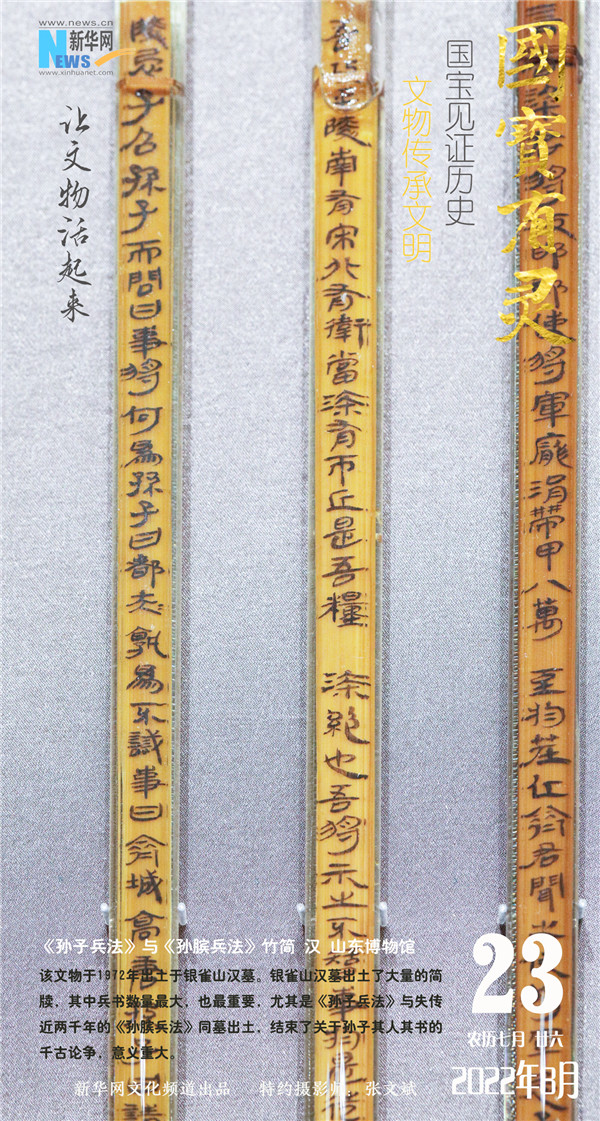 www.news.cn
新华网
NEWS
www.xinhuanet.com
让文物活起来
國寶有灵
国宝见证历史
文物传承文明
使將軍龐涓帶甲八萬 至於茬丘齊君聞
陵南有宋北有衛當涂有市丘是吾糧 涂絕也吾將示之不智事
忌子召孫子而問曰事將何為孫子曰都大夫孰為不識事曰齊城高
《孙子兵法》与《孙膑兵法》竹简 汉 山东博物馆
该文物于1972年出土于银雀山汉墓。银雀山汉墓出土了大量的简
牍，其中兵书数量最大，也最重要，尤其是《孙子兵法》与失传
近两千年的《孙膑兵法》同墓出土，结束了关于孙子其人其书的
千古论争，意义重大。
新华网文化频道出品 特约摄影师：张文斌
23
农历七月 廿六
2022年8月